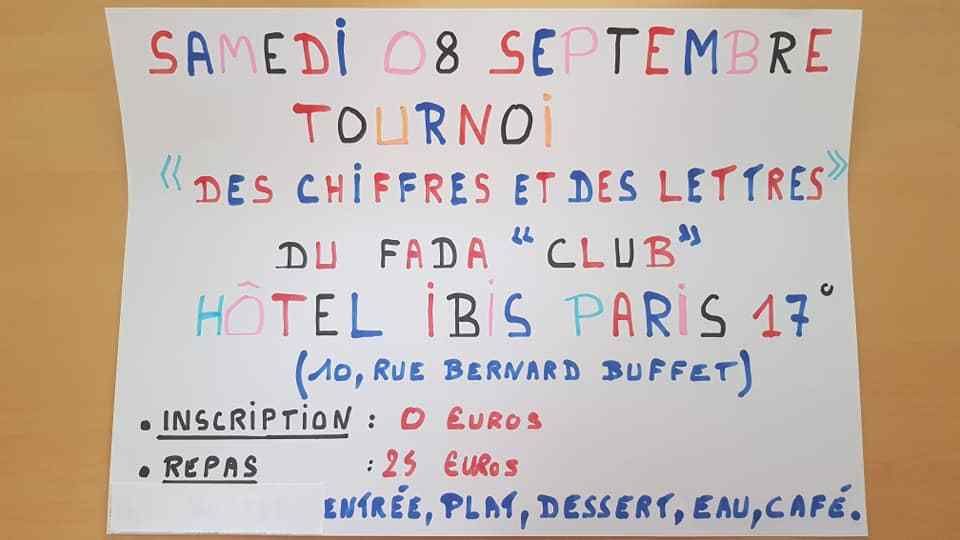 SAMEDI 08 SEPTEMBRE
TOURNOI
« DES CHIFFRES ET DES LETTRES »
DU FADA “CLUB”
HÔTEL IBIS PARIS 17°
(10, RUE BERNARD BUFFET)
• INSCRIPTION : 0 EUROS
• REPAS : 25 EUROS
ENTRÉE, PLAT, DESSERT, EAU, CAFÉ.